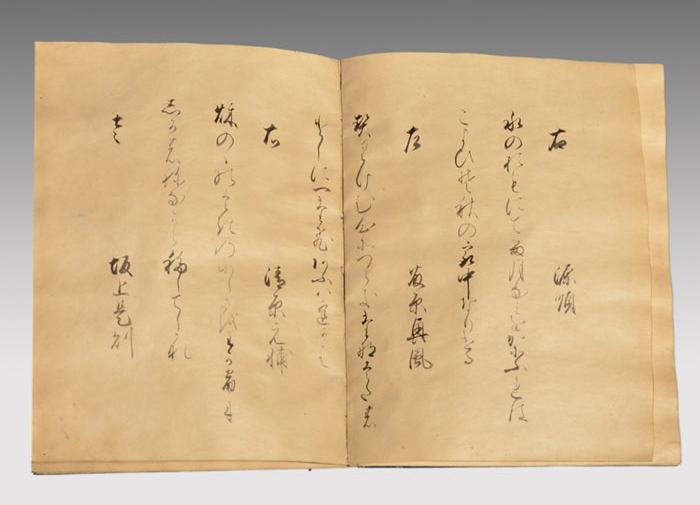 右　源順
水のおもにてる月なみをかそふれは
こよひそ秋の最中なりける
左　藤原興風
契りけむ心そつらきたなはたの
としに一たひあふハ逢かは
右　清原元輔
秋のゝの
しかのねなから移してしかな
左　坂上是則